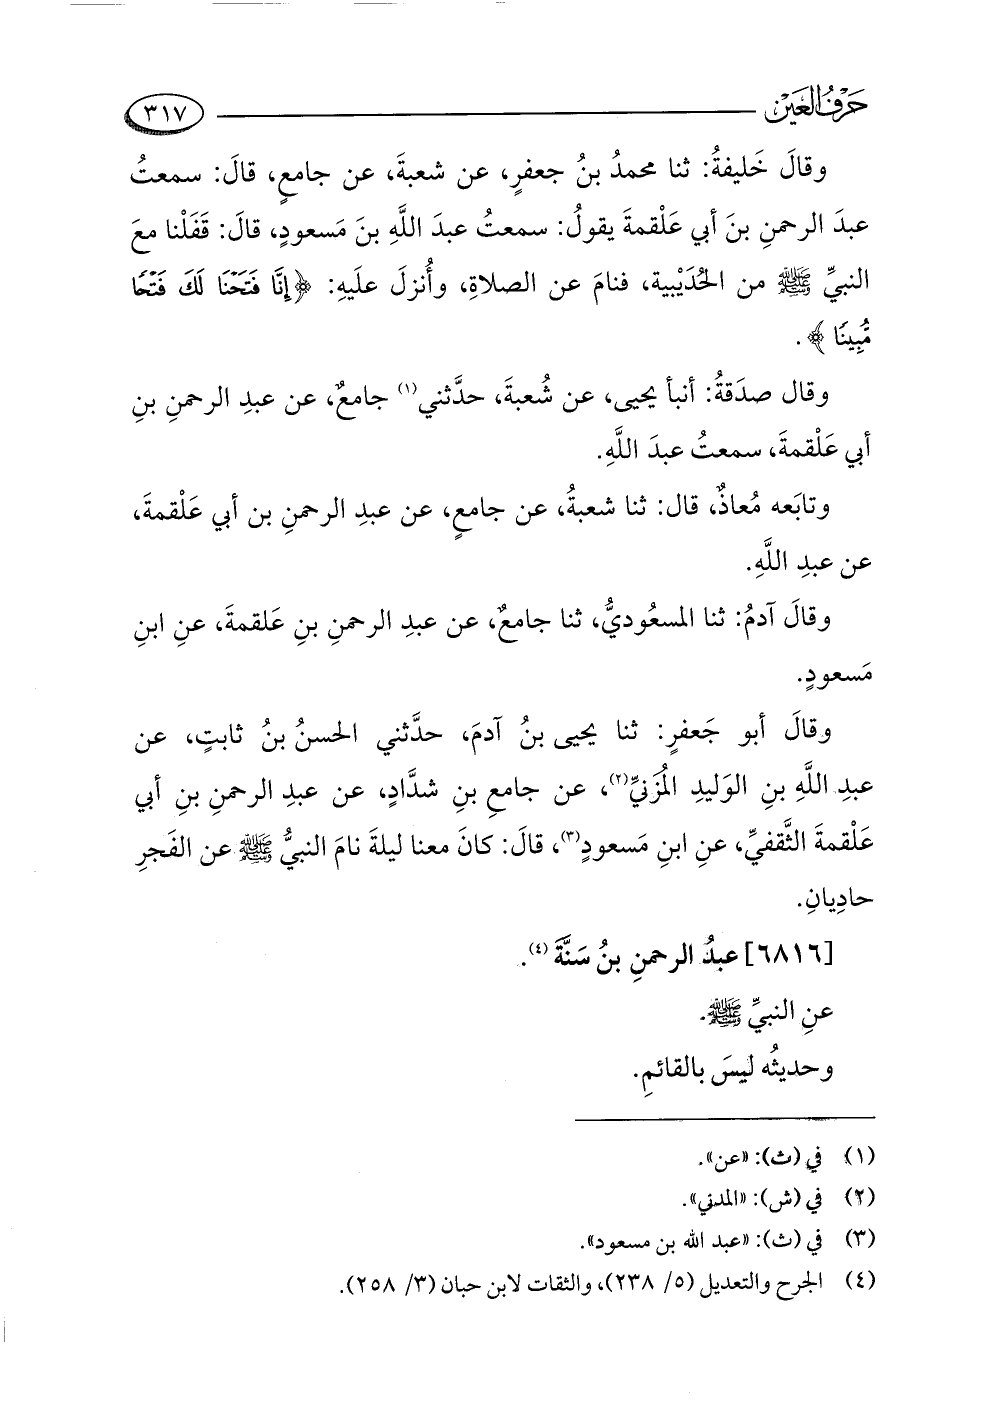 حَرْفُ العَيْن
٣١٧
وقالَ خَليفةُ: ثنا محمدُ بنُ جعفرٍ، عن شعبةَ، عن جامعٍ، قالَ: سمعتُ
عبدَ الرحمنِ بنَ أبي عَلْقمةَ يقولُ: سمعتُ عبدَ اللَّهِ بنَ مَسعودٍ، قالَ: قَفَلْنا معَ
النبيِّ ﷺ من الحُدَيْبية، فنامَ عن الصلاةِ، وأُنزلَ عليَهِ: ﴿إِنَّا فَتَحْنَا لَكَ فَتْحًا
مُّبِينًا﴾.
وقال صدَقةُ: أنبأ يحيى، عن شُعبةَ، حدَّثني(١) جامعٌ، عن عبدِ الرحمنِ بنِ
أبي عَلْقمةَ، سمعتُ عبدَ اللَّهِ.
وتابَعه مُعاذٌ، قال: ثنا شعبةُ، عن جامعٍ، عن عبدِ الرحمنِ بن أبي عَلْقمةَ،
عن عبدِ اللَّهِ.
وقالَ آدمُ: ثنا المسعُوديُّ، ثنا جامعٌ، عن عبدِ الرحمنِ بنِ عَلقمةَ، عنِ ابنِ
مَسعودٍ.
وقالَ أبو جَعفرٍ: ثنا يحيى بنُ آدمَ، حدَّثني الحسنُ بنُ ثابتٍ، عن
عبدِ اللَّهِ بنِ الوَليدِ المُزَنيِّ(٢)، عن جامعِ بنِ شدَّادٍ، عن عبدِ الرحمنِ بنِ أبي
عَلْقمةَ الثَّقفيِّ، عنِ ابنِ مَسعودٍ(٣)، قالَ: كانَ معنا ليلةَ نامَ النبيُّ ﷺ عن الفَجرِ
حادِيانِ.
[٦٨١٦] عبدُ الرحمنِ بنُ سَنَّةَ(٤).
عنِ النبيِّ ﷺ.
وحديثُه ليسَ بالقائمِ.
(١) في (ث): «عن».
(٢) في (ش): «المدني».
(٣) في (ث): «عبد الله بن مسعود».
(٤) الجرح والتعديل (٥/ ٢٣٨)، والثقات لابن حبان (٣/ ٢٥٨).